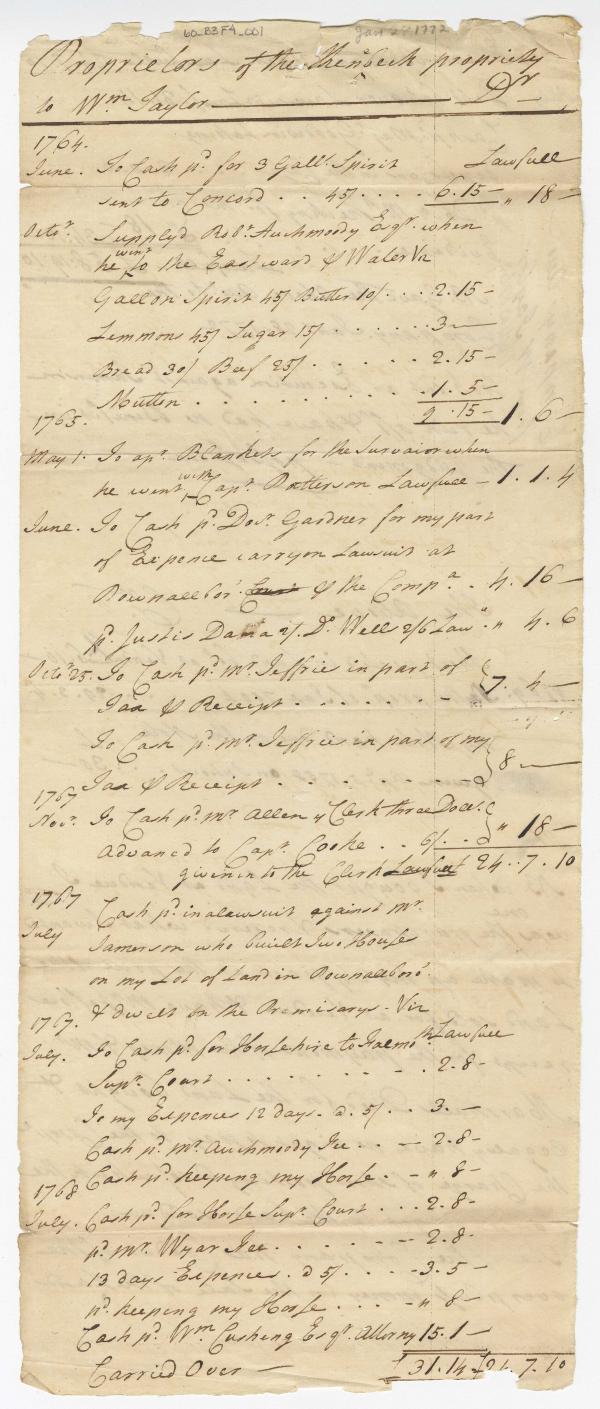 60_B3F4_001
Jan 28 1772
Proprietors of the Kenebeck propriety
to Wm Taylor Dr
1764.
June. To Cash pd. for 3 Galls. Spirit Lawfull
sent to Concord . . 45/ . . . . 6.15 — " 18 —
Octor. Supplyd Robt. Auchmoody Esqr. when
he went to the Eastward & Water Viz
Gallon Spirit 45/ Butter 10/ . . . 2.15 —
Lemmons 45/ Sugar 15/ . . . . . . 3 —
Bread 30/ Beef 25/ . . . . . . 2.15 —
Mutton . . . . . . . . . 1.5 —
9.15 — 1.6 —
1765.
May 1. To 4pr. Blankets for the Survaior when
he went with Capt. Patterson Lawfull — 1.1.4
June. To Cash pd. Docr. Gardner for my part
of Expence carryon Lawsuit at
Pownallboro. Court & the Compa. . 4.16 —
pd. Justis Dana 2/. Do. Wells 2/6 Law. " 4.6
Octor 25. To Cash pd. Mr. Jeffries in part of
Tax & Receipt . . . . . . . — 7.4 —
To Cash pd. Mr. Jeffries in part of my
Tax & Receipt . . . . . . . 8 —
1767
Novr. To Cash pd. Mr. Allen y Clerk three Doll.
advanced to Capt. Cooke . . 6/. . . " 18 —
given in to the Clerk Lawfull £ 24.7.10
1767
July Cash pd. in a lawsuit against Mr.
Jamerson who built Two Houses
on my Lot of Land in Pownallboro.
& dwelt on the Premisarys - Viz
1767.
July. To Cash pd. for Horse hire to Falmoth Lawfull
Supr. Court . . . . . . . . 2.8 -
To my Expences 12 days . a . 5/ . . 3. —
Cash pd. Mr. Auchmoody Fee . . — 2.8 -
Cash pd. keeping my Horse . — " 8 —
1768
July. Cash pd. for Horse Supr. Court . . . 2.8 -
pd. Mr. Wyar Fee . . . . . . — 2.8 -
13 days Expences . a 5/ . . . — 3.5 —
pd. keeping my Horse . . . — " 8 —
Cash pd. Wm. Cusheng Esqr. Attorny 15.1 —
Carried Over — £ 31.14 £21.7.10